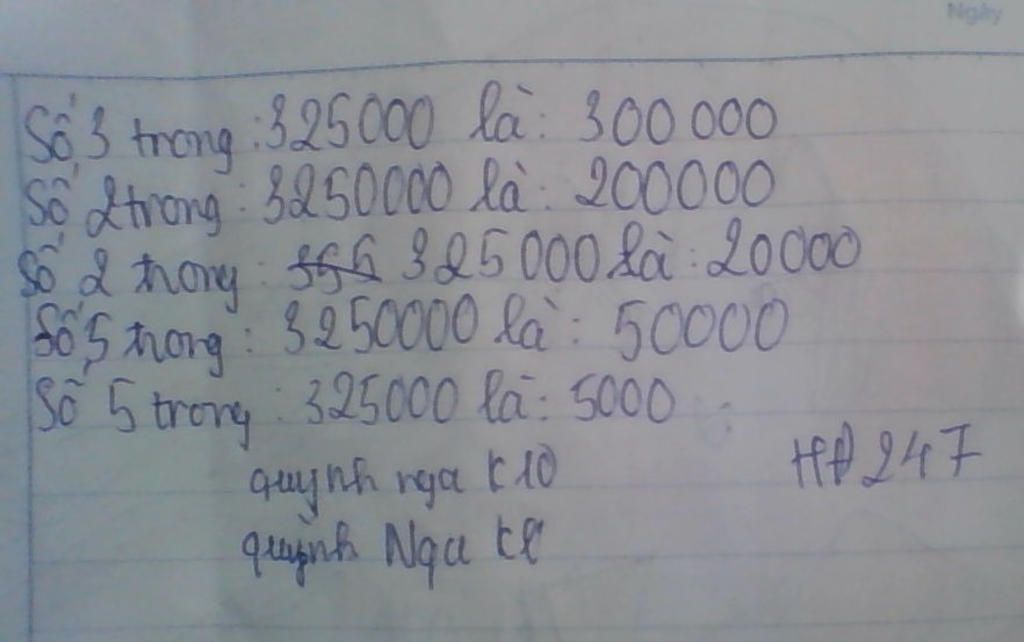 Ngày
Số 3 trong : 325000 là : 300 000
Số 2 trong : 3250000 là : 200000
Số 2 trong : 325000 là : 20000
Số 5 trong : 3250000 là : 50000
Số 5 trong : 325000 là : 5000
quỳnh nga t10
HĐ 247
quỳnh Nga